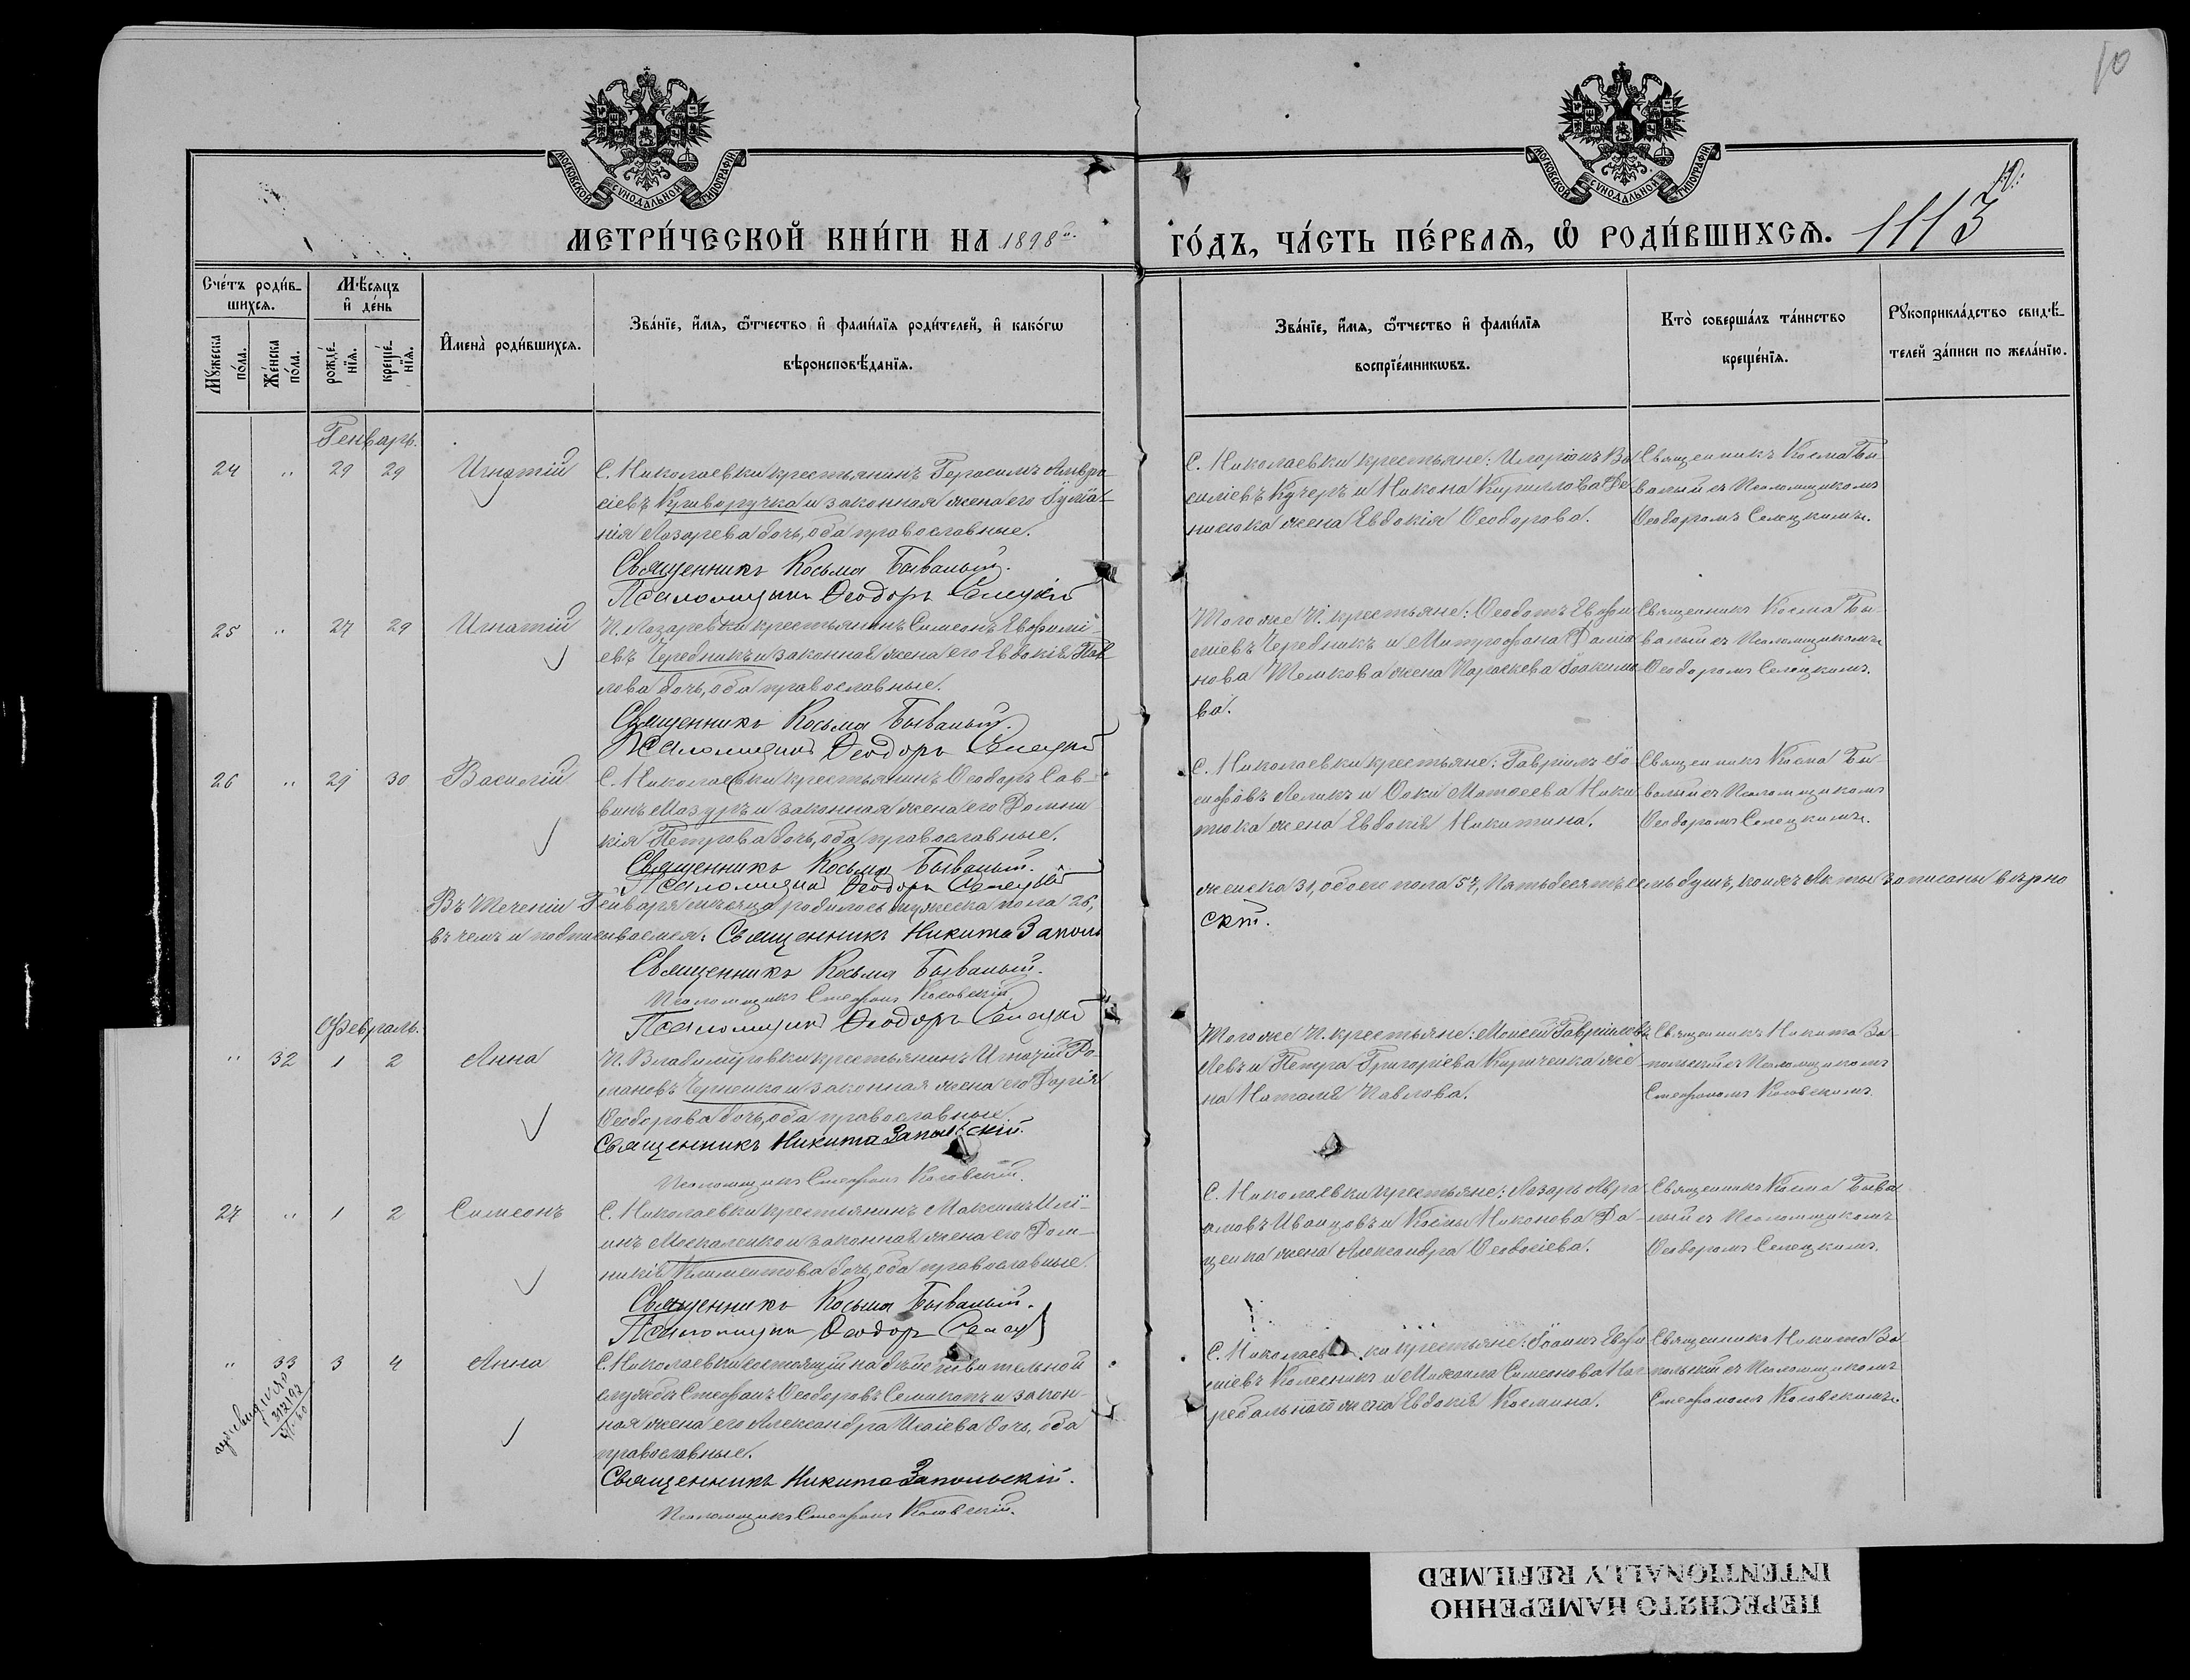 10
МОСКОВСКОЙ СУНОДАЛЬНОЙ ТИПОГРАФІИ
МОСКОВСКОЙ СУНОДАЛЬНОЙ ТИПОГРАФІИ
МЕТРИ́ЧЕСКОЙ КНИ́ГИ НА 1898
ГО́ДЪ, ЧА́СТЬ ПЕ́РВАѦ, Ѽ РОДИ́ВШИХСѦ. 1113
Сче́тъ роди́в-
шихсѧ.
Мꙋ́жеска по́ла.
Же́нска по́ла.
М'ѣсѧцъ
и де́нь
рожде́нїѧ.
креще́нїѧ.
И҆мена̀ роди́вшихсѧ.
Зва́нїе, и҆́мѧ, ѿтчество и фами́лїѧ роди́телей, и како́гѡ
вѣроисповѣ́данїѧ.
Зва́нїе, и҆́мѧ, ѿтчество и фами́лїѧ
воспрїе́мникѡвъ.
Кто̀ соверша́лъ та́инство
креще́нїѧ.
Рꙋкоприкла́дство свидѣ́-
телей за́писи по жела́нїю.
Генварь.
24 " 29 29 Игнатій
С. Николаевки крестьянинъ Герасимъ Амвро
сіевъ Криворучка и законная жена его Іулiа-
нія Лазарева дочь, оба православные.
Священникъ Косьма Бывалый.
Псаломщикъ Ѳеодоръ Селецкій
С. Николаевки крестьяне: Иларіонъ Ва
силіевъ Кучеръ и Никона Кириллова Де
нисюка жена Евдокія Ѳеодорова.
Священникъ Косма Бы
валый съ Псаломщикомъ
Ѳеодоромъ Селецкимъ.
25 " 27 29 Игнатій
П. Лазаревки крестьянинъ Симеонъ Евфимі-
евъ Чередникъ и законная жена его Евдокія Пав
лова дочь, оба православные.
Священникъ Косьма Бывалый.
Псаломщикъ Ѳеодоръ Селецкій
Того же П. крестьяне: Ѳеодотъ Евфи
міевъ Чередникъ и Митрофана Даміа
нова жена Параскева Іоакимо
ва.
Священникъ Косма Бы
валый съ Псаломщикомъ
Ѳеодоромъ Селецкимъ.
26 " 29 30 Василій
С. Николаевки крестьянинъ Ѳеодоръ Сав-
винъ Мазуръ и законная жена его Домни
кія Петрова дочь, оба православные.
Священникъ Косьма Бывалый.
Псаломщикъ Ѳеодоръ Селецкій
С. Николаевки крестьяне: Гавріилъ Іо
сифовъ Леликъ и Ѳоки Матѳеева Ники
тюка жена Евдокія Никитина.
Священникъ Косма Бы
валый съ Псаломщикомъ
Ѳеодоромъ Селецкимъ.
Въ теченіи Генваря мѣсяца родилось мужеска пола 26,
женска 31, обоего пола 57, Пятьдесятъ семь душъ, коихъ Акты записаны вѣрно
въ чемъ и подписываемся: Священникъ Никита Заполь
скій.
Священникъ Косьма Бывалый.
Псаломщикъ Стефанъ Косовскій.
Псаломщикъ Ѳеодоръ Селецкій
Февраль.
" 32 1 2 Анна
П. Владиміровки крестьянинъ Игнатій Ро-
мановъ Черненко и законная жена его Дарія
Ѳеодорова дочь, оба православные.
Священникъ Никита Запольскій.
Псаломщикъ Стефанъ Косовскій.
Того же П. крестьяне: Моисей Гавріилевъ
Левъ и Петра Григоріева Кириченка же-
на Наталія Павлова.
Священникъ Никита За-
польскій съ Псаломщикомъ
Стефаномъ Косовскимъ
27 " 1 2 Симеонъ
С. Николаевки крестьянинъ Максимъ Илі-
инъ Москаленко и законная жена его Дом-
никія Климентова дочь, оба православные.
Священникъ Косьма Бывалый.
Псаломщикъ Ѳеодоръ Селец
С. Николаевки крестьяне: Лазарь Авра
амовъ Иванцовъ и Космы Никонова Да-
ценка жена Александра Ѳеодосіева.
Священникъ Косма Быва
лый съ Псаломщикомъ
Ѳеодоромъ Селецкимъ.
" 33 3 4 Анна
С. Николаевки состоящій на дѣйствительной
службѣ Стефанъ Ѳеодоровъ Семикопъ и закон-
ная жена его Александра Исаіева дочь, оба
православные.
Священникъ Никита Запольскій.
Псаломщикъ Стефанъ Косовскій.
С. Николаевки крестьяне: Іоаннъ Евфи
міевъ Колесникъ и Михаила Симеонова
жена Евдокія Космина.
Священникъ Никита За
польскій съ Псаломщикомъ
Стефаномъ Косовскимъ
ПЕРЕСНЯТО НАМЕРЕННО
INTENTIONALLY REFILMED